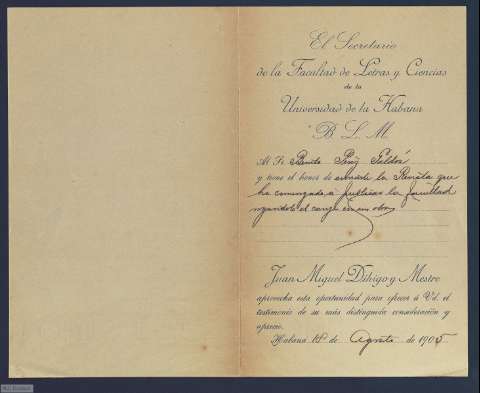 El Secretario
de la Facultad de Letras y Ciencias
de la
Universidad de la Habana
B. L. M.
Al Sr. Benito Pérez Galdós
y tiene el honor de enviarle la Revista que
ha comenzado á publicar la facultad
rogándole el cange con sus obras
Juan Miguel Dihigo y Mestre
aprovecha esta oportunidad para ofrecer á Vd. el
testimonio de su más distinguida consideración y
aprecio.
Habana 18 de Agosto de 1905